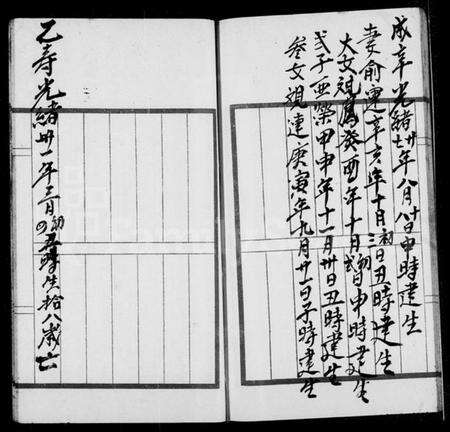 成辛光緒廿七年八月十八日申時建生
妻俞連辛亥年十月初三日丑時建生
大女視鳳癸酉年十月初弍日申時建生
弍子亜榮甲申年十一月卅日丑時建生
叁女視連庚寅年九月廿一日子時建生
乙寿光緒卅一年三月初四丑時生拾八歲亡